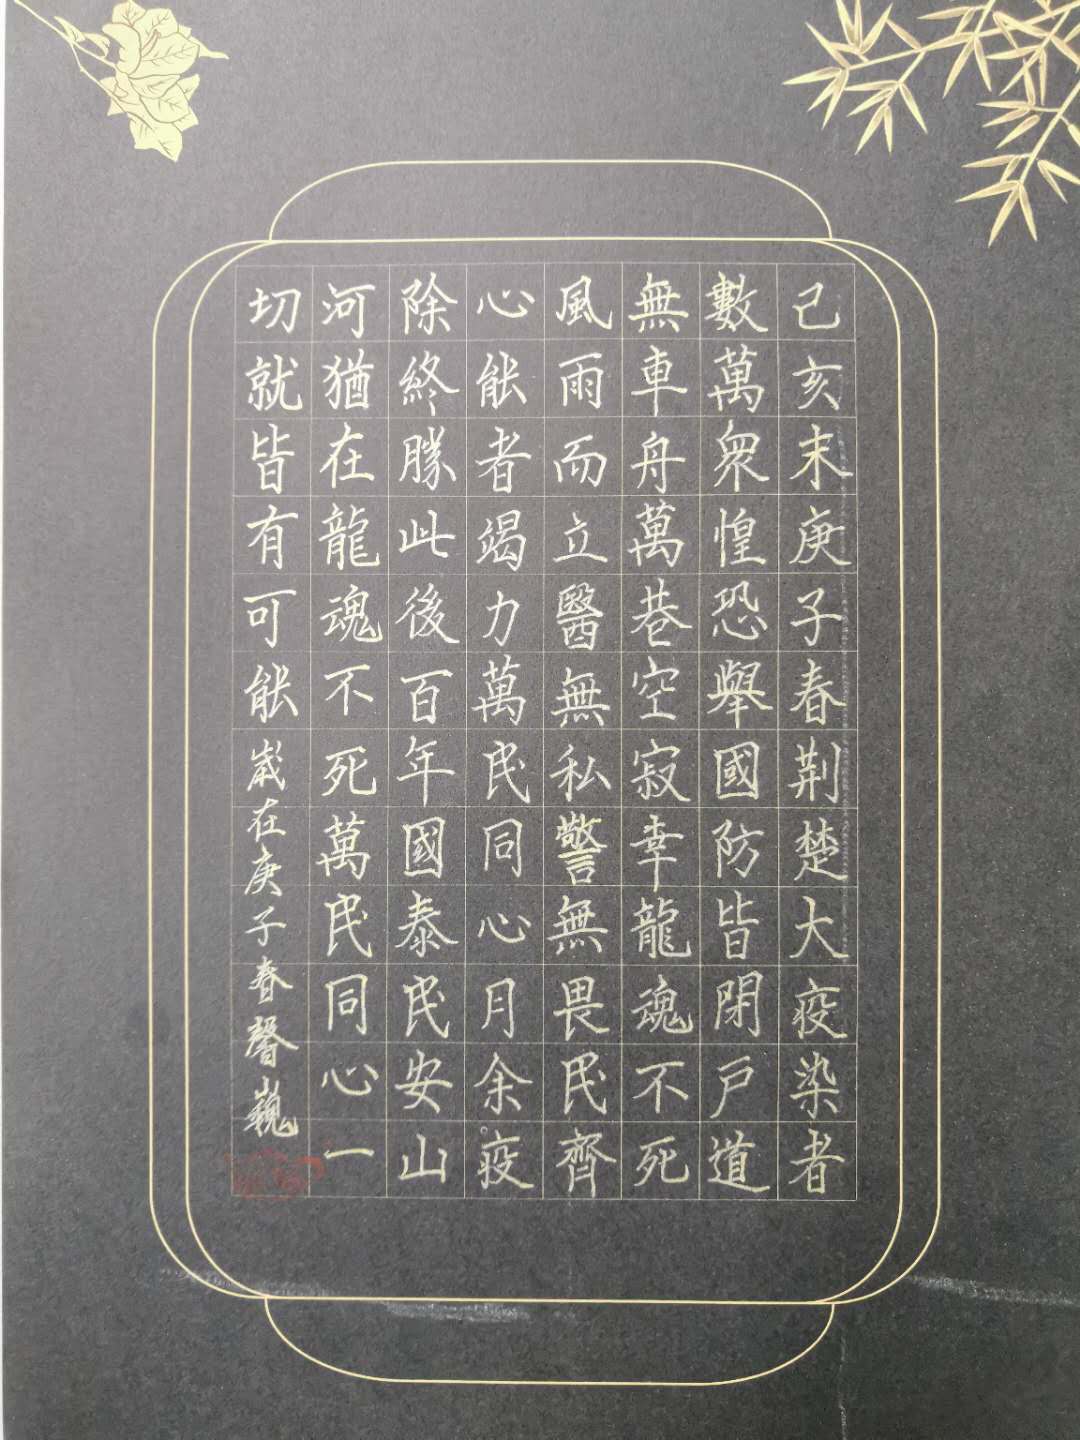 己亥末庚子春荆楚大疫染者
數萬衆惶恐舉國防皆閉戶道
無車舟萬巷空寂幸龍魂不死
風雨而立醫無私警無畏民齊
心能者竭力萬民同心月余疫
除終勝此後百年國泰民安山
河猶在龍魂不死萬民同心一
切就皆有可能歲在庚子春馨巍